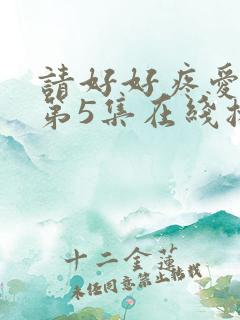 請好好疼愛
第5集在綫
十二金蓮
未经同意禁止转载